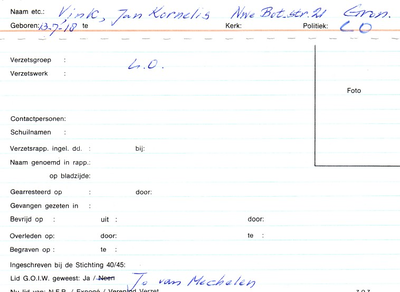 Naam etc.: Vink, Jan Kornelis Nwe Bot.str. 21 Gron.
Geboren: 13-7-18 te Kerk: Politiek: LO
Verzetsgroep : L.O.
Verzetswerk :
Foto
Contactpersonen:
Schuilnamen :
Verzetsrapp. ingel. dd. : bij:
Naam genoemd in rapp.:
op bladzijde:
Gearresteerd op : door:
Gevangen gezeten in :
Bevrijd op : uit : door:
Overleden op: door: te :
Begraven op : te :
Ingeschreven bij de Stichting 40/45:
Lid G.O.I.W. geweest: Ja / Neen Jo van Mechelen